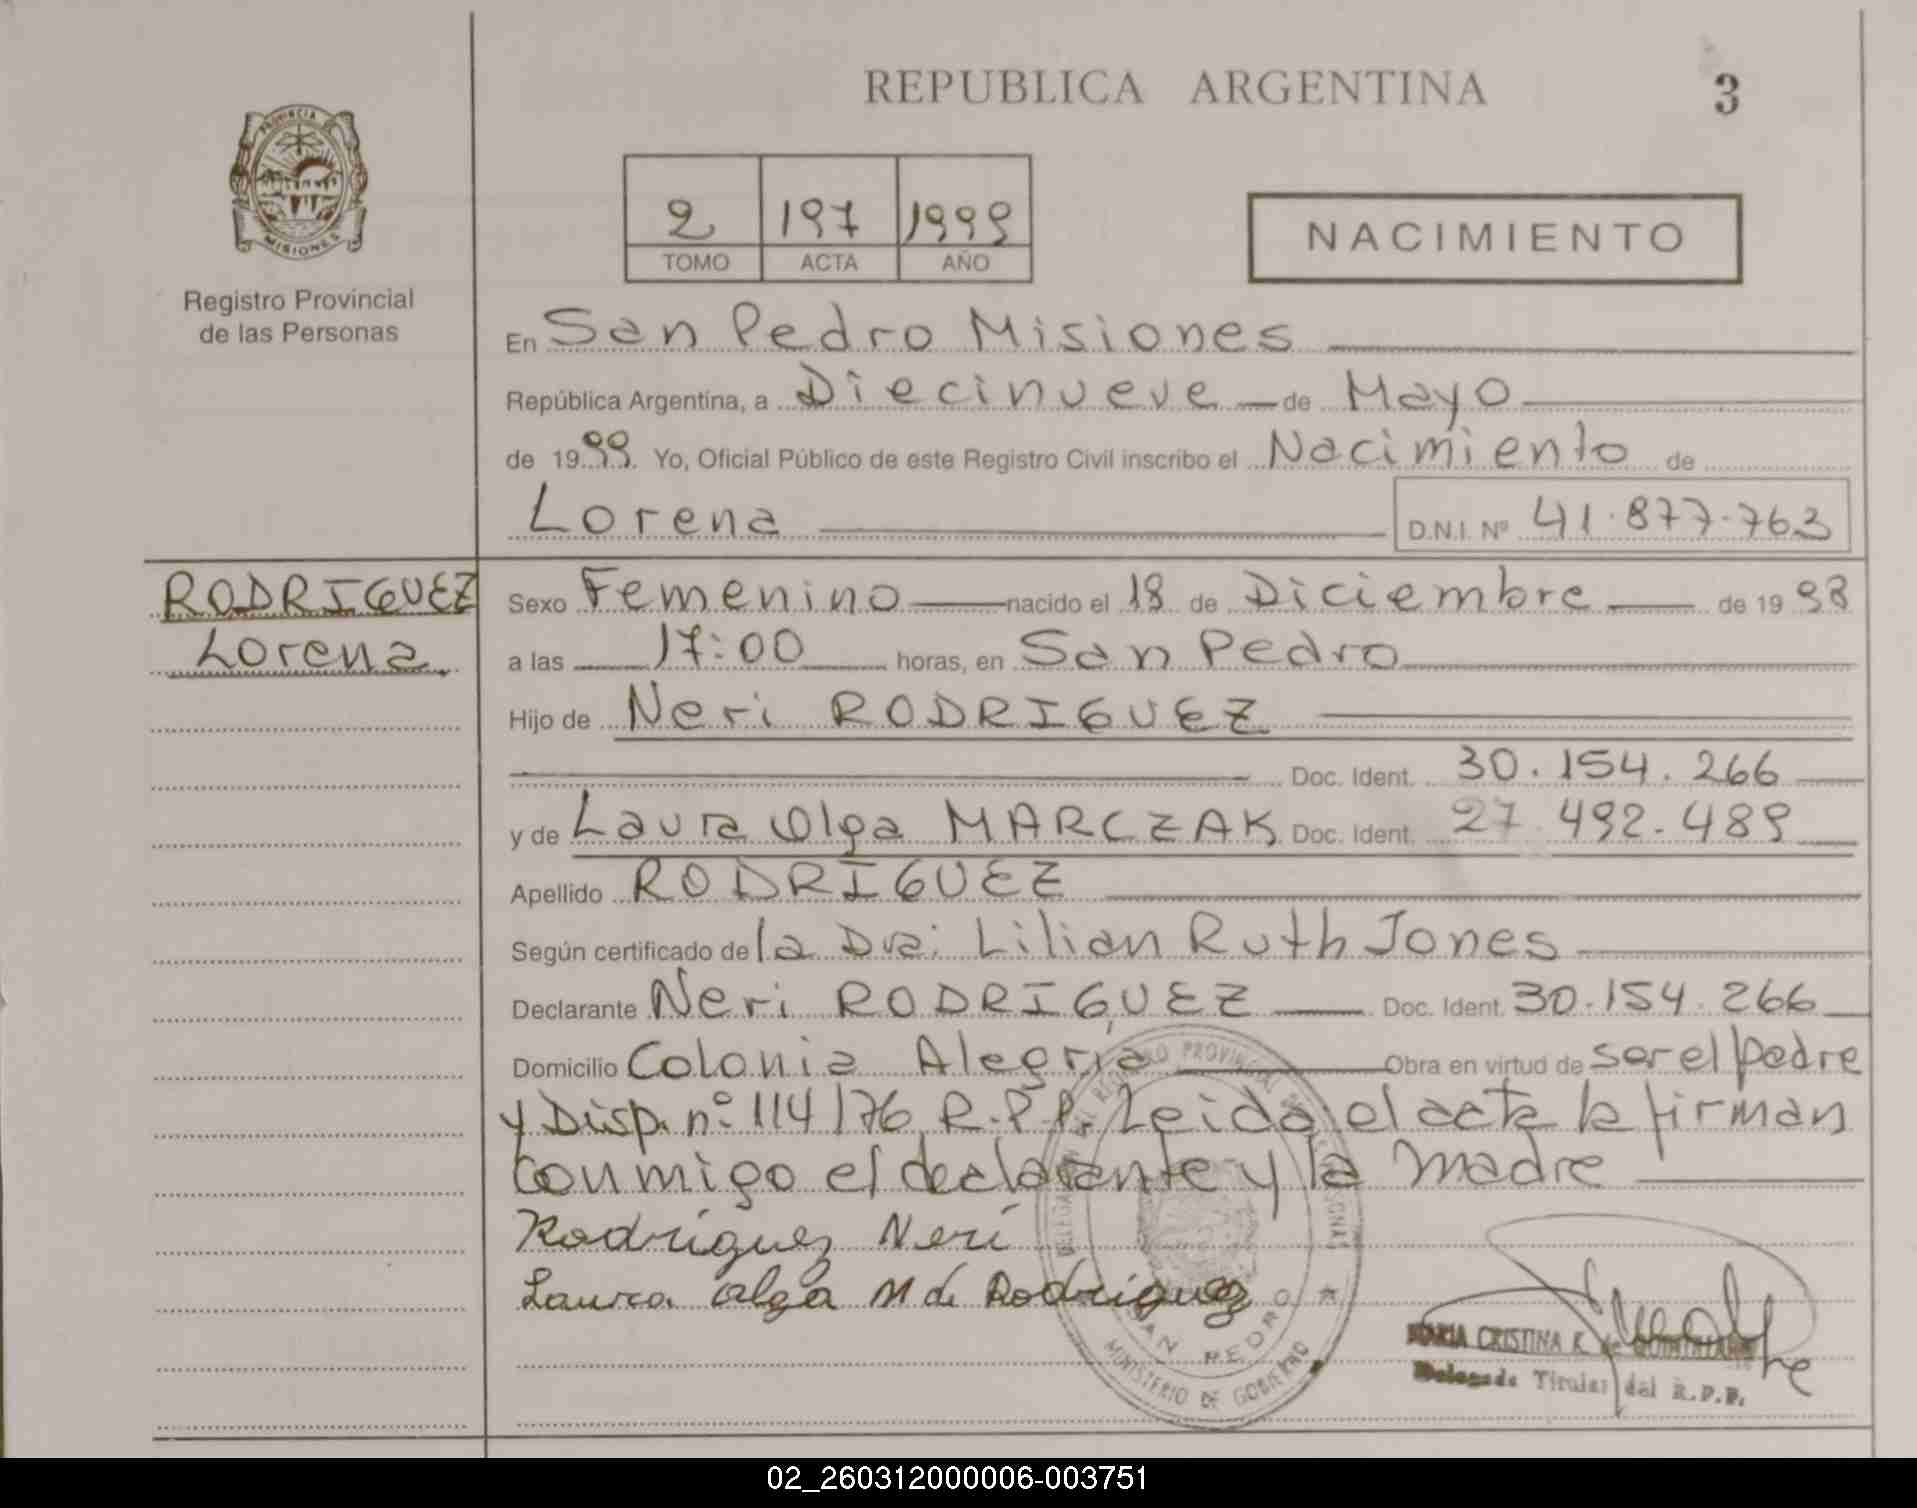 REPUBLICA ARGENTINA
3
PROVINCIA DE
MISIONES
Registro Provincial
de las Personas
2 197 1999
TOMO ACTA AÑO
NACIMIENTO
En San Pedro Misiones
República Argentina, a Diecinueve de Mayo
de 1999. Yo, Oficial Público de este Registro Civil inscribo el Nacimiento de
Lorena D.N.I. Nº 41.877.763
RODRIGUEZ
Lorena
Sexo Femenino nacido el 18 de Diciembre de 1998
a las 17:00 horas, en San Pedro
Hijo de Neri RODRIGUEZ
Doc. Ident. 30.154.266
y de Laura Olga MARCZAK Doc. Ident. 27.492.489
Apellido RODRIGUEZ
Según certificado de la Dra. Lilian Ruth Jones
Declarante Neri RODRIGUEZ Doc. Ident. 30.154.266
Domicilio Colonia Alegria Obra en virtud de ser el padre
y Disp. nº 114/76 R.P.P. Leida el acta la firman
conmigo el declarante y la madre
Rodriguez Neri
Laura Olga M de Rodriguez
SAN PEDRO
MINISTERIO DE GOBIERNO
MARIA CRISTINA K. de
Delegada Titular del R.P.P.
02_260312000006-003751